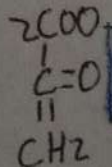 2COO-
|
C=O
||
CH2